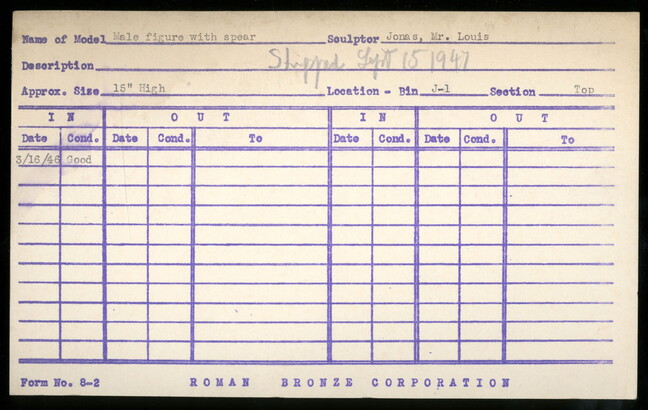 Name of Model Male figure with spear Sculptor Jonas, Mr. Louis
Description Shipped Sept 15 1947
Approx. Size 15" High Location - Bin J-1 Section Top
IN OUT IN OUT
Date Cond. Date Cond. To Date Cond. Date Cond. To
3/16/46 Good
Form No. 8-2 ROMAN BRONZE CORPORATION